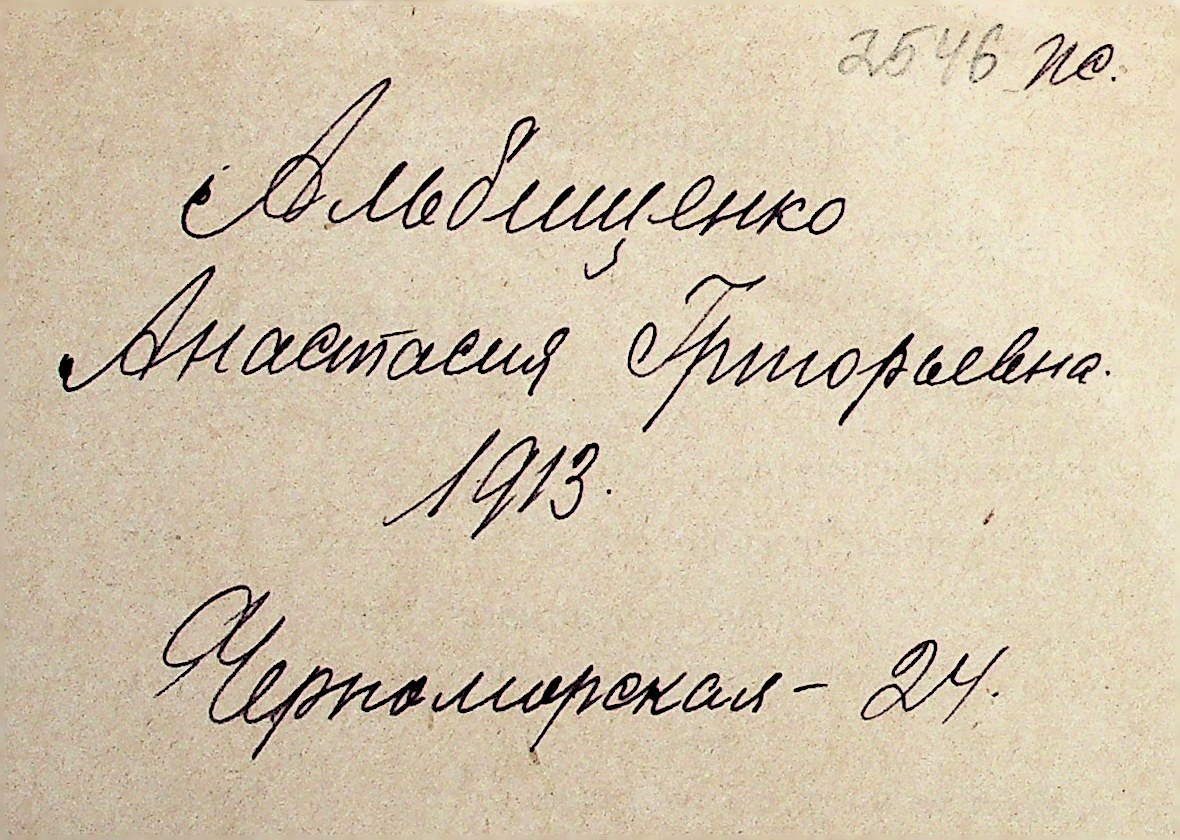 2546 пс.
Альбищенко
Анастасия Григорьевна.
1913.
Черноморская - 24.